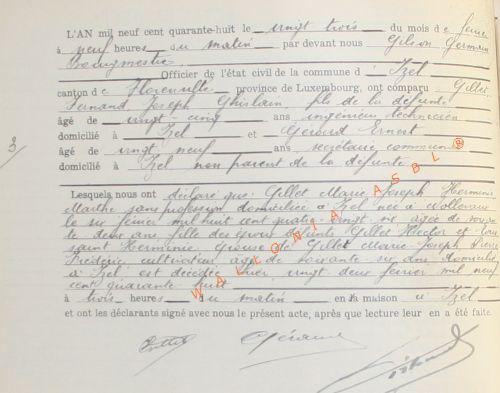 L'AN mil neuf cent quarante-huit le vingt trois du mois de février
à neuf heures du matin par devant nous Gilson Germain
Bourgmestre
Officier de l'état civil de la commune d'Izel
canton de Florenville province de Luxembourg, ont comparu Gillet
Fernand Joseph Ghislain, fils de la défunte
âgé de vingt-cinq ans ingénieur technicien
domicilié à Izel et Gérard Ernest
âgé de vingt neuf ans secrétaire communal
domicilié à Izel non parent de la défunte
3
Lesquels nous ont déclaré que Gillet Marie Joseph Herminie
Marthe sans profession domiciliée à Izel née à
le six février mil huit cent quatre vingt six âgée de soixan
te deux ans fille des époux défunts Gillet Hector et
saint Herminie épouse de Gillet Marie Joseph Pierre
Frédéric cultivateur âgé de soixante six ans domicilié
à Izel est décédée hier vingt deux février mil neuf
cent quarante huit
à trois heures du matin en sa maison à Izel
et ont les déclarants signé avec nous le présent acte, après que lecture leur en a été faite.
WALLONIA ASBL ®